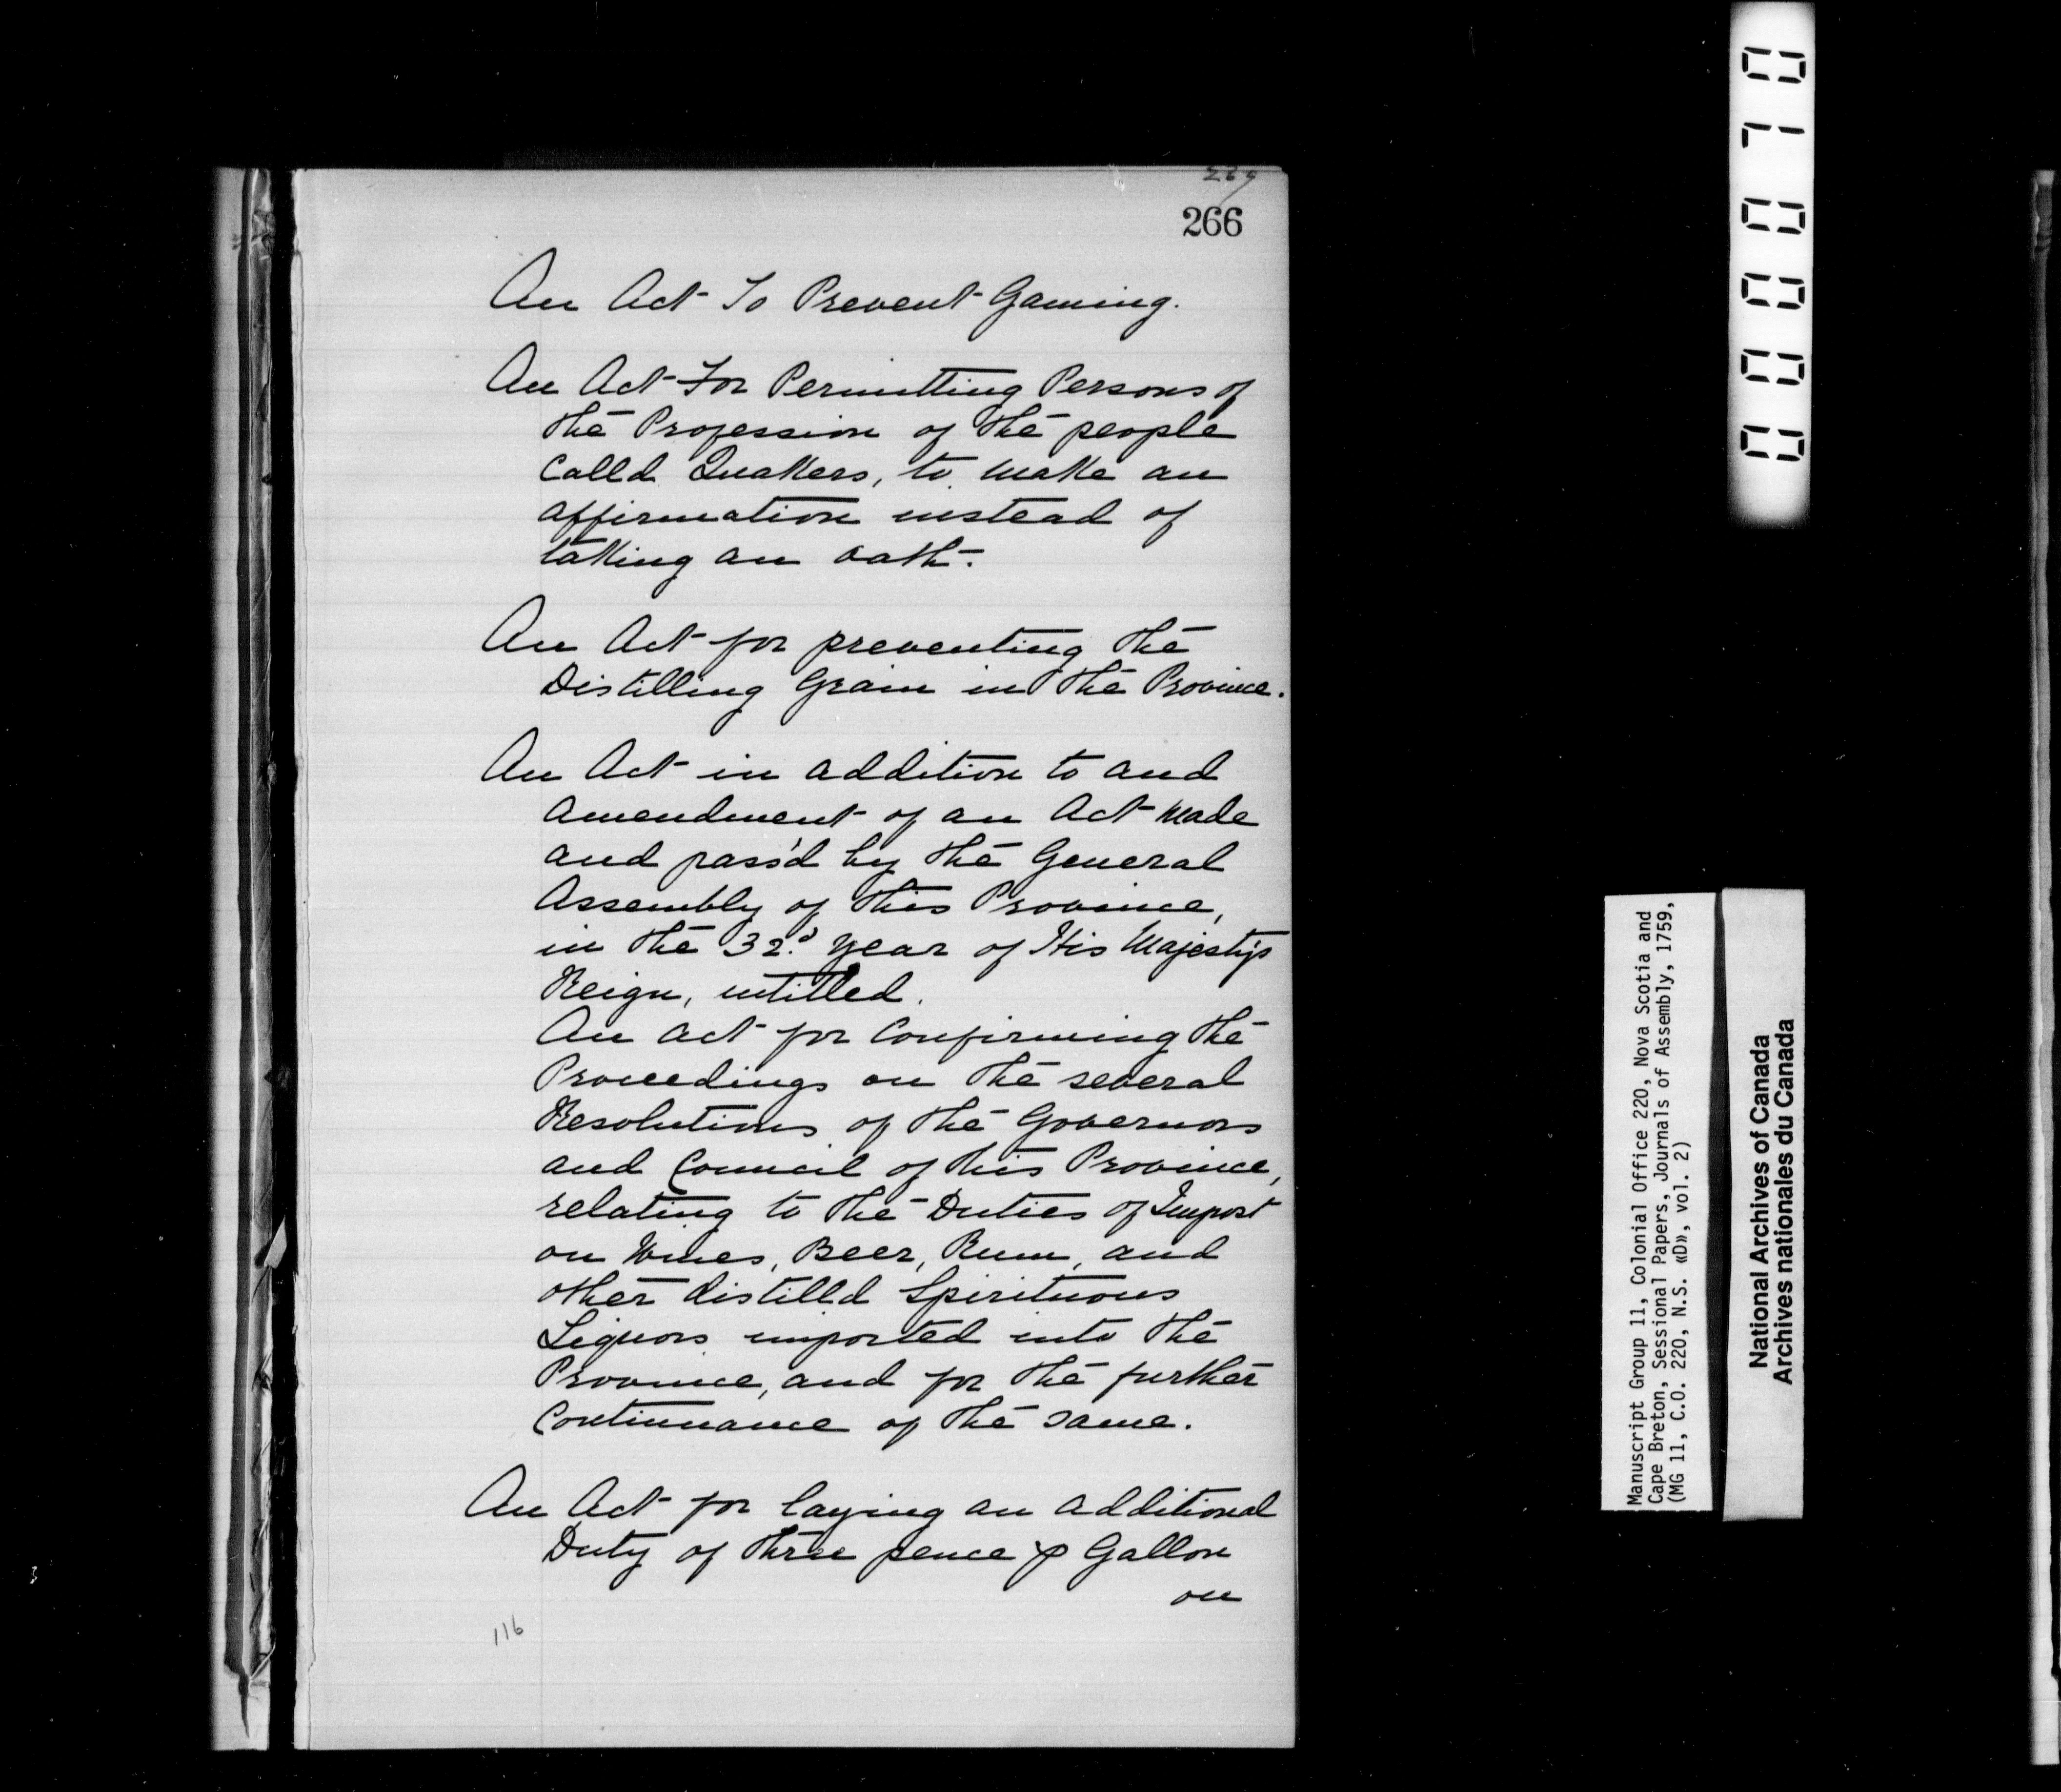 269
266
An Act To Prevent Gaming.
An Act For Permitting Persons of
the Profession of the people
Calld Quakers, to make an
affirmation instead of
taking an oath.
An Act for preventing the
Distilling Grain in the Province.
An Act in addition to and
amendment of an Act made
and pass'd by the General
Assembly of this Province,
in the 32.d year of His Majesty's
Reign, intitled.
An act for Confirming the
Proceedings on the several
Resolutions of the Governors
and Council of this Province,
relating to the Duties of Impost
on Wines, Beer, Rum, and
other distilld Spirituous
Liquors imported into the
Province, and for the further
Continuance of the same.
An Act for laying an additional
Duty of three pence ⅌ Gallon
on
116
000070
Manuscript Group 11, Colonial Office 220, Nova Scotia and
Cape Breton, Sessional Papers, Journals of Assembly, 1759,
(MG 11, C.O. 220, N.S. «D», vol. 2)
National Archives of Canada
Archives nationales du Canada